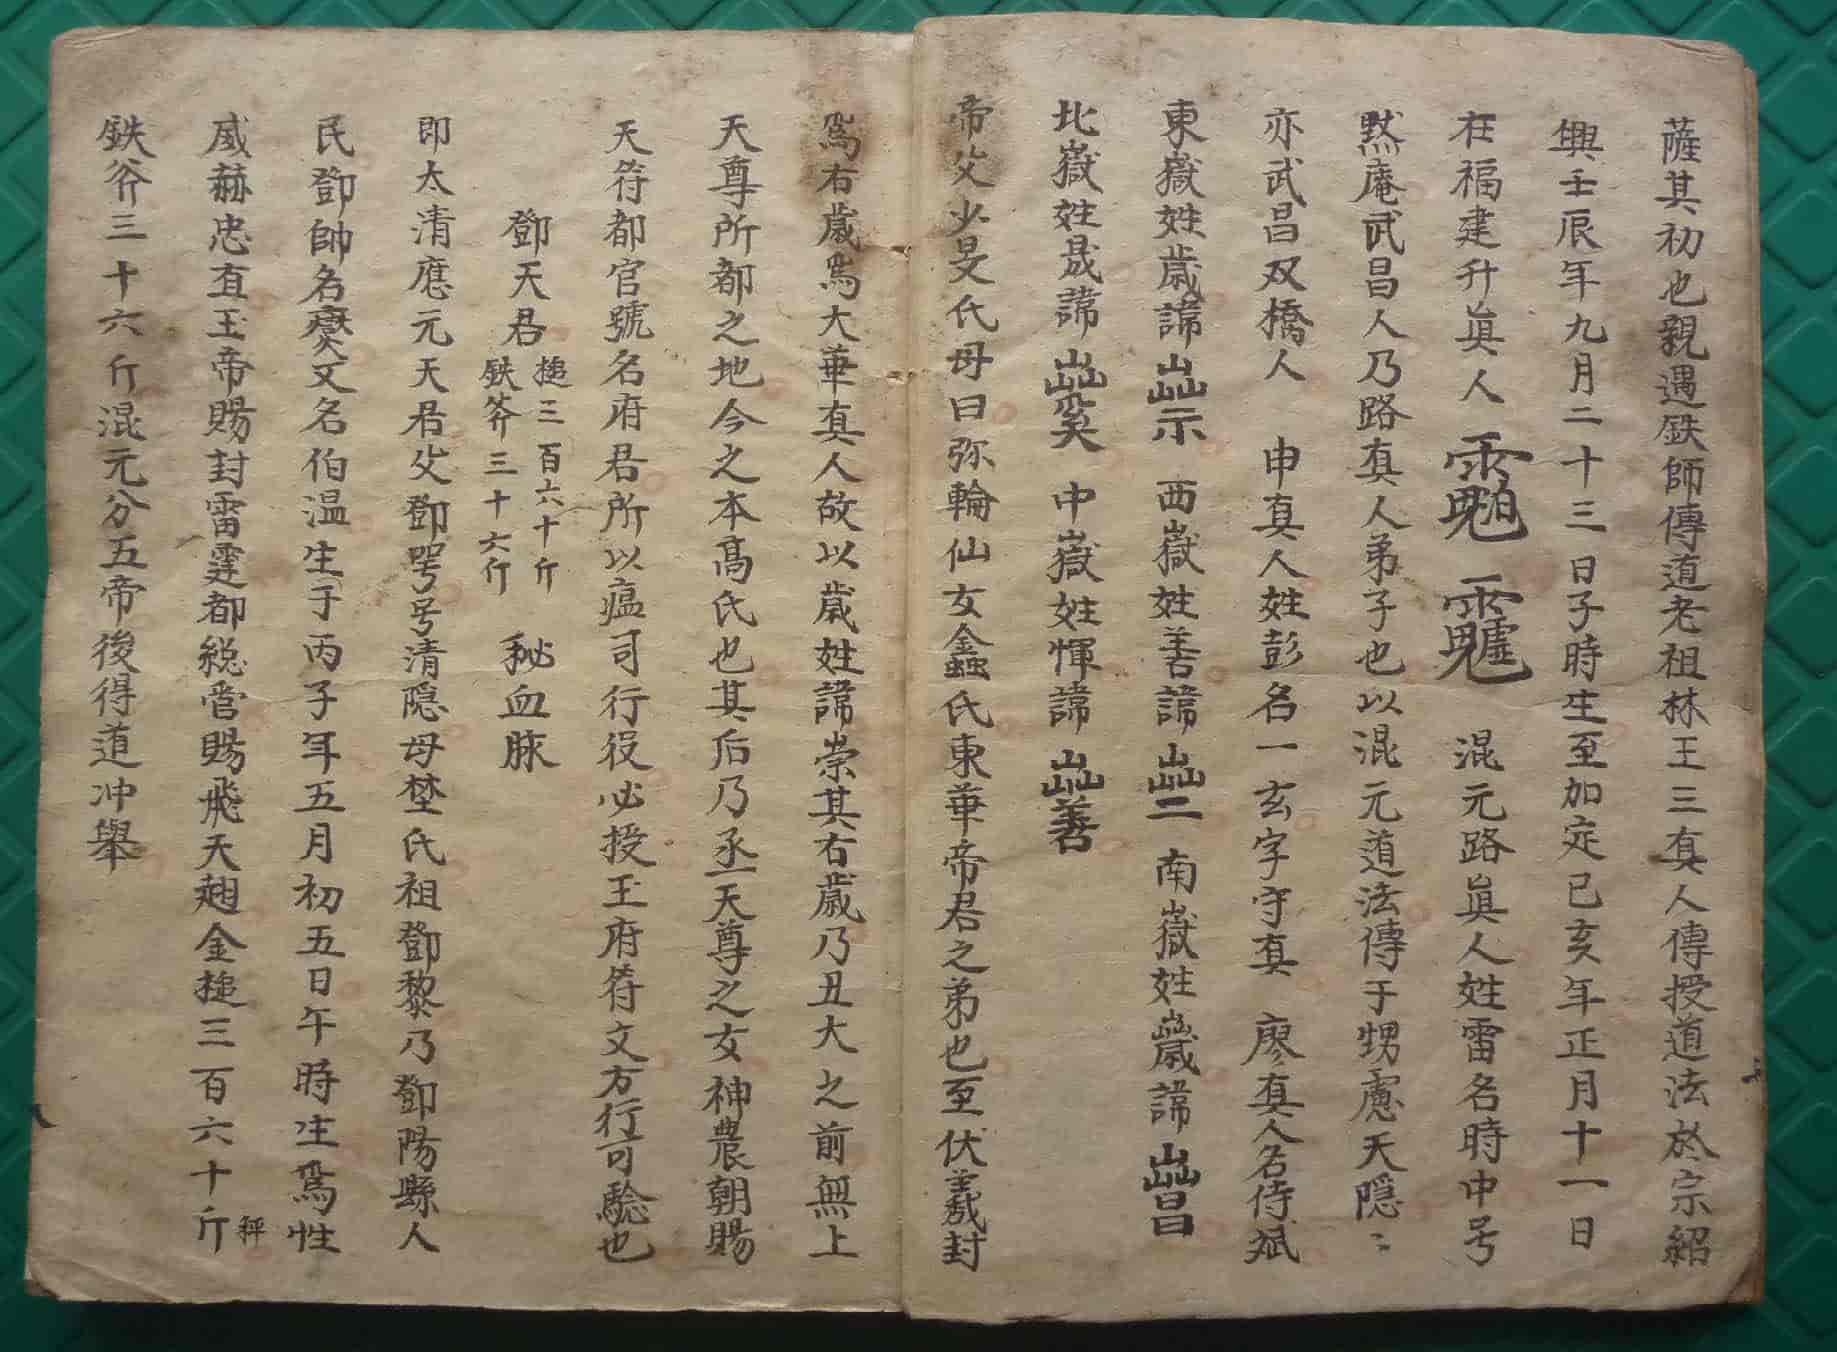 薩其初也親遇鉄師傳道老祖林王三真人傳授道法於宗紹
興壬辰年九月二十三日子時生至加定已亥年正月十一日
在福建升眞人 混元路眞人姓雷名時中号
黙庵武昌人乃路真人弟子也以混元道法傳于甥慮天隠〻
亦武昌双橋人 申真人姓彭名一玄字守真 廖真人名侍斌
東嶽姓歳諱 西嶽姓善諱 南嶽姓諱
北嶽姓晟諱 中嶽姓惲諱
帝父少旻氏母曰弥輪仙女氏東華帝君之弟也至伏羲封
為右歳為大華真人故以歳姓諱崇其右歳乃丑大之前無上
天尊所都之地今之本高氏也其后乃丞天尊之女神農朝賜
天符都官號名府君所以瘟司行役必授玉府符文方行可驗也
鄧天君 搥三百六十斤 鉄斧三十六斤 秘血脉
即太清應元天君父鄧咢号清隠母埜氏祖鄧黎乃鄧陽縣人
民鄧帥名爕文名伯温生于丙子年五月初五日午時生為性
威赫忠直玉帝賜封雷霆都総管賜飛天翅金搥三百六十斤秤
鉄斧三十六斤混元分五帝後得道冲舉